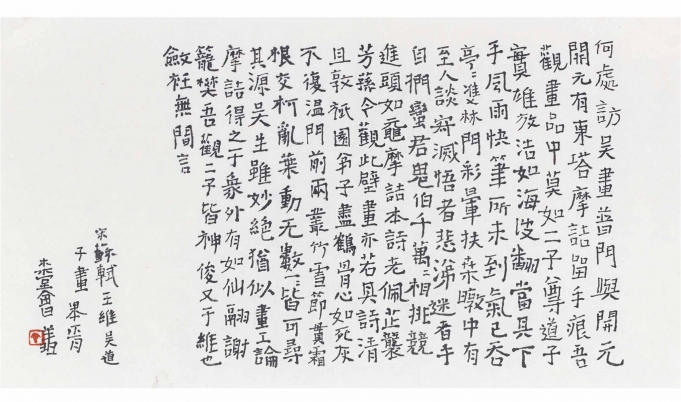 何處訪吴畫普門與開元
開元有東塔摩詰留手痕吾
觀畫品中莫如二子尊道子
實雄放浩如海波翻當其下
手風雨快筆所未到氣已吞
亭〻雙林門彩暈扶桑暾中有
至人談寂滅悟者悲涕迷者手
自捫蠻君鬼伯千萬〻相排競
進頭如黿摩詰本詩老佩芷襲
芳蓀今觀此壁畫亦若其詩清
且敦祇園弟子盡鶴骨心如死灰
不復温門前兩叢竹雪節貫霜
根交柯亂葉動无數一一皆可尋
其源吴生雖妙絶猶似畫工論
摩詰得之于象外有如仙翮謝
籠樊吾觀二子皆神俊又于維也
斂衽無間言
宋蘇軾王維吴道
子畫